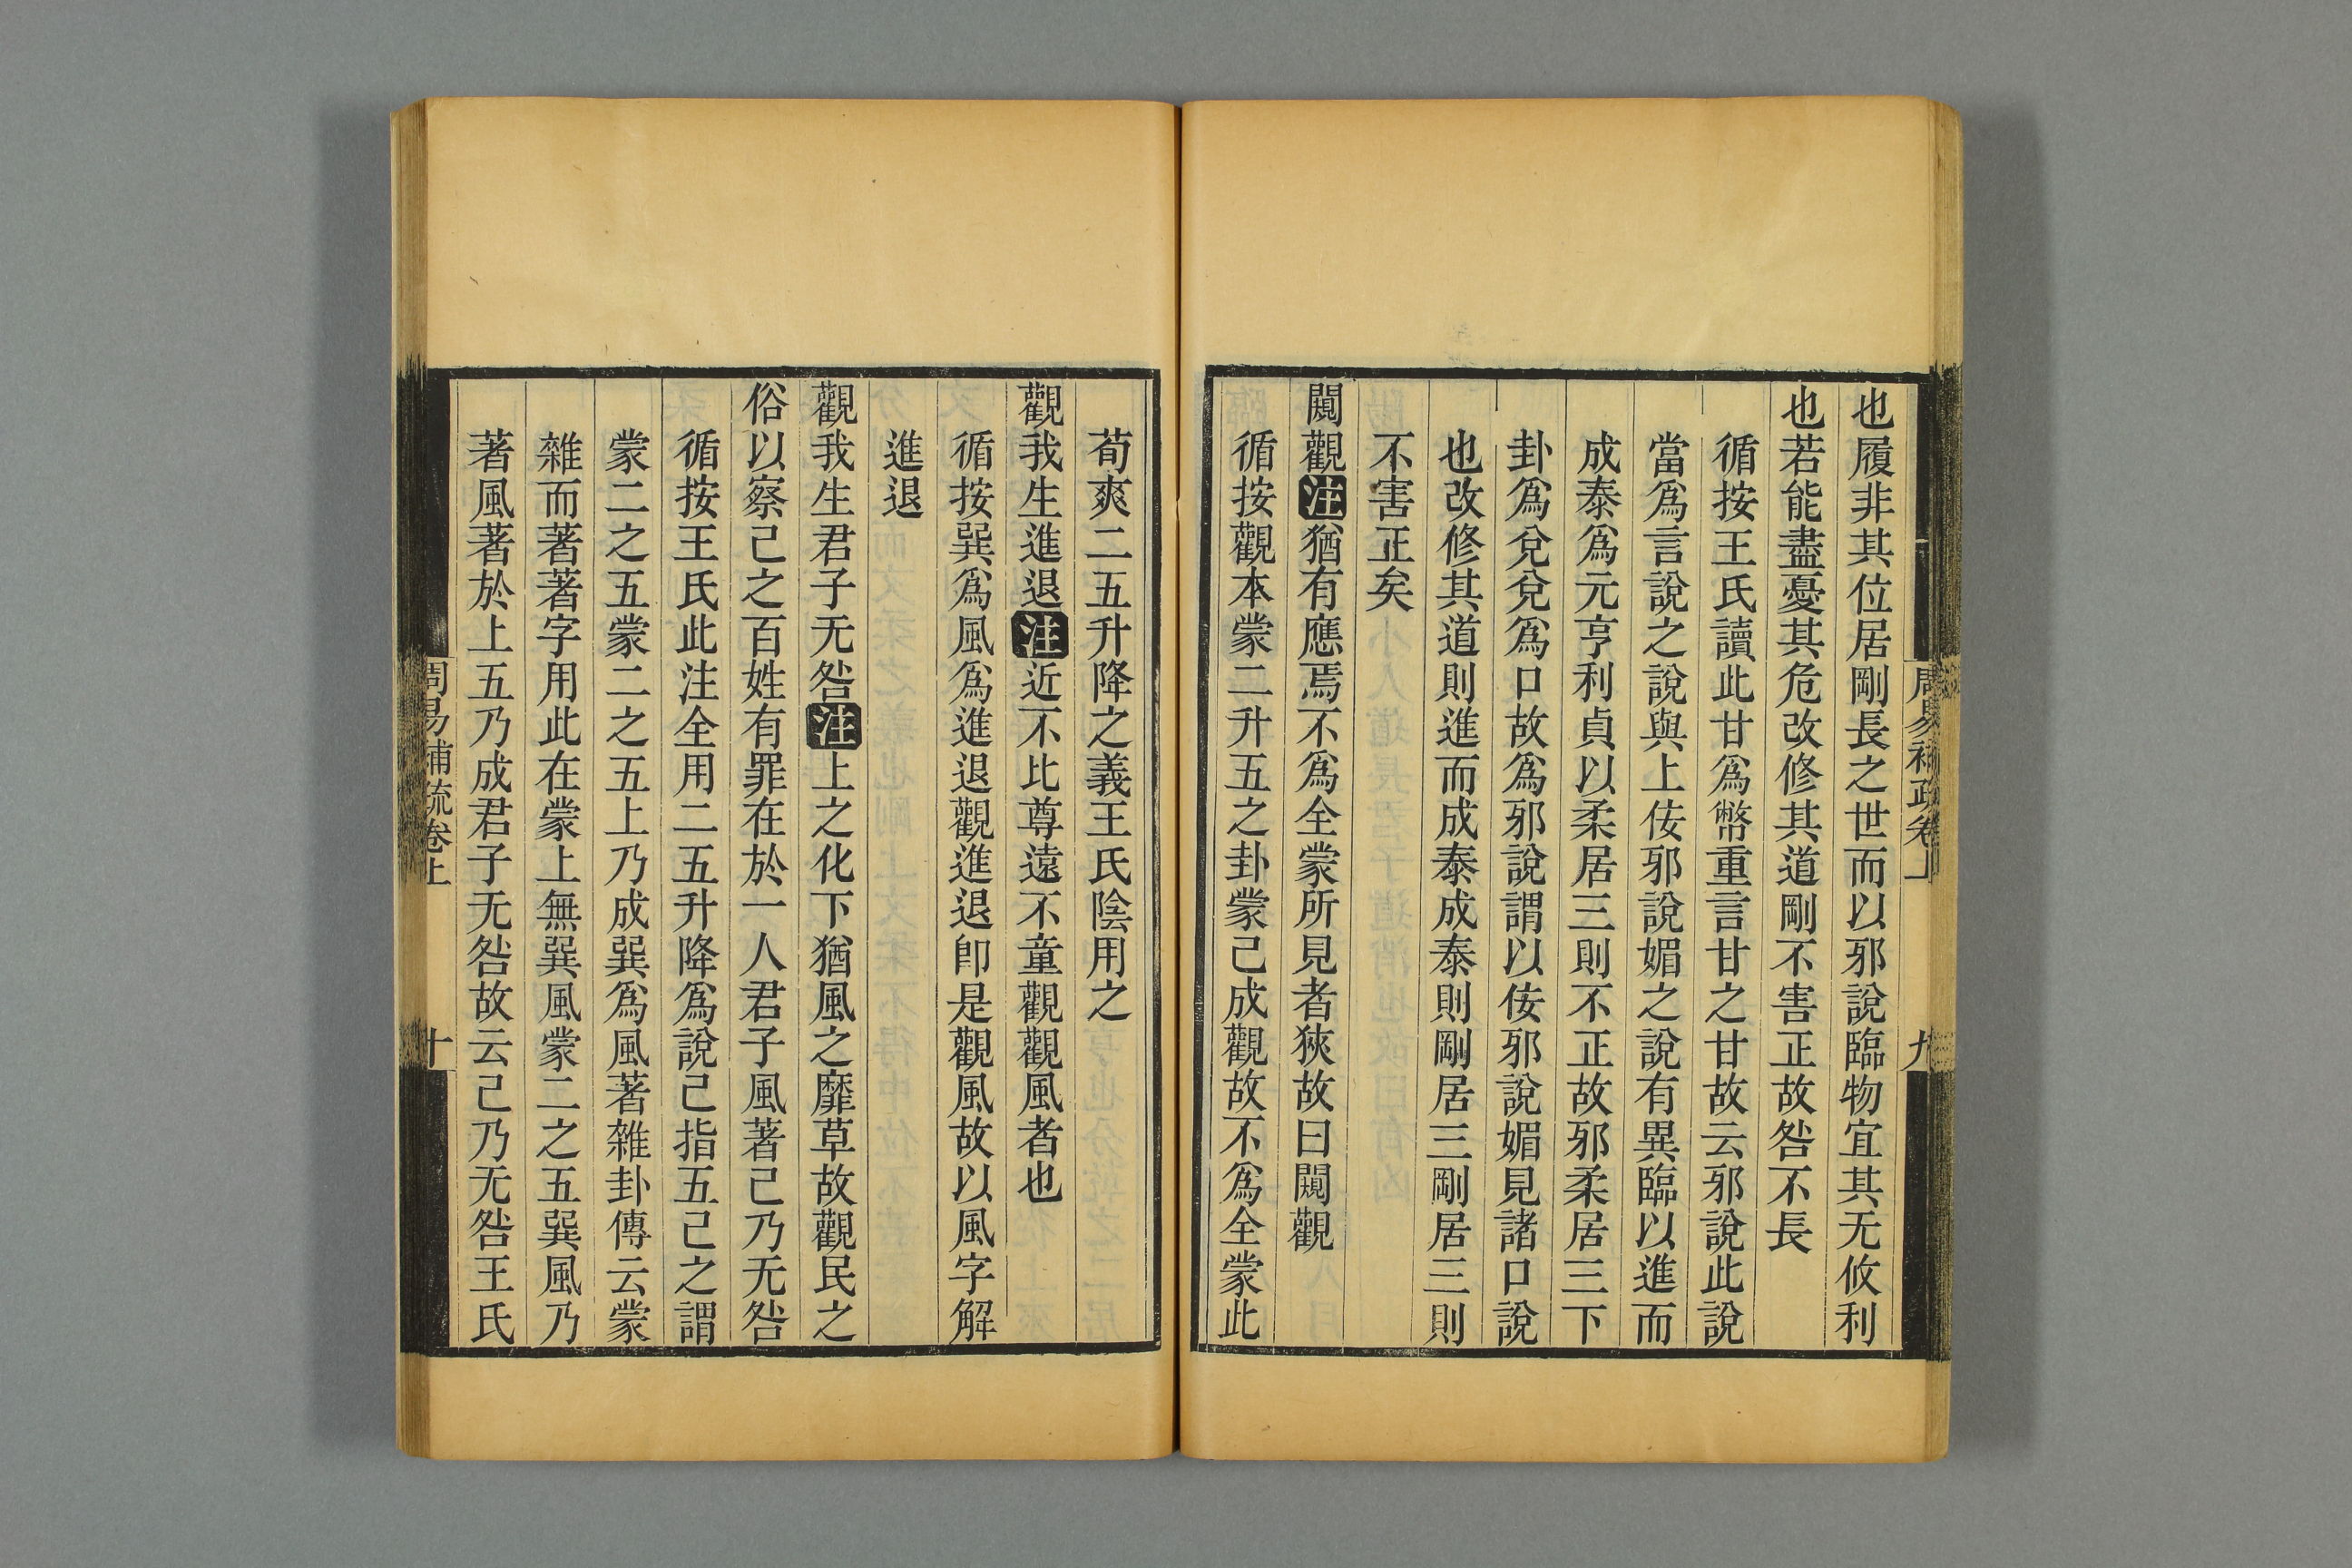 周易補疏卷上
九
也履非其位居剛長之世而以邪說臨物宜其无攸利
也若能盡憂其危改修其道剛不害正故咎不長
循按王氏讀此甘為幣重言甘之甘故云邪說此說
當為言說之說與上佞邪說媚之說有異臨以進而
成泰為元亨利貞以柔居三則不正故邪柔居三下
卦為兌兌為口故為邪說謂以佞邪說媚見諸口說
也改修其道則進而成泰成泰則剛居三剛居三則
不害正矣
闚觀注猶有應焉不為全蒙所見者狹故曰闚觀
循按觀本蒙二升五之卦蒙己成觀故不為全蒙此
荀爽二五升降之義王氏陰用之
觀我生進退注近不比尊遠不童觀觀風者也
循按巽為風為進退觀進退卽是觀風故以風字解
進退
觀我生君子无咎注上之化下猶風之靡草故觀民之
俗以察己之百姓有罪在於一人君子風著己乃无咎
循按王氏此注全用二五升降為說己指五己之謂
蒙二之五蒙二之五上乃成巽為風著雜卦傳云蒙
雜而著著字用此在蒙上無巽風蒙二之五巽風乃
著風著於上五乃成君子无咎故云己乃无咎王氏
周易補疏卷上
十